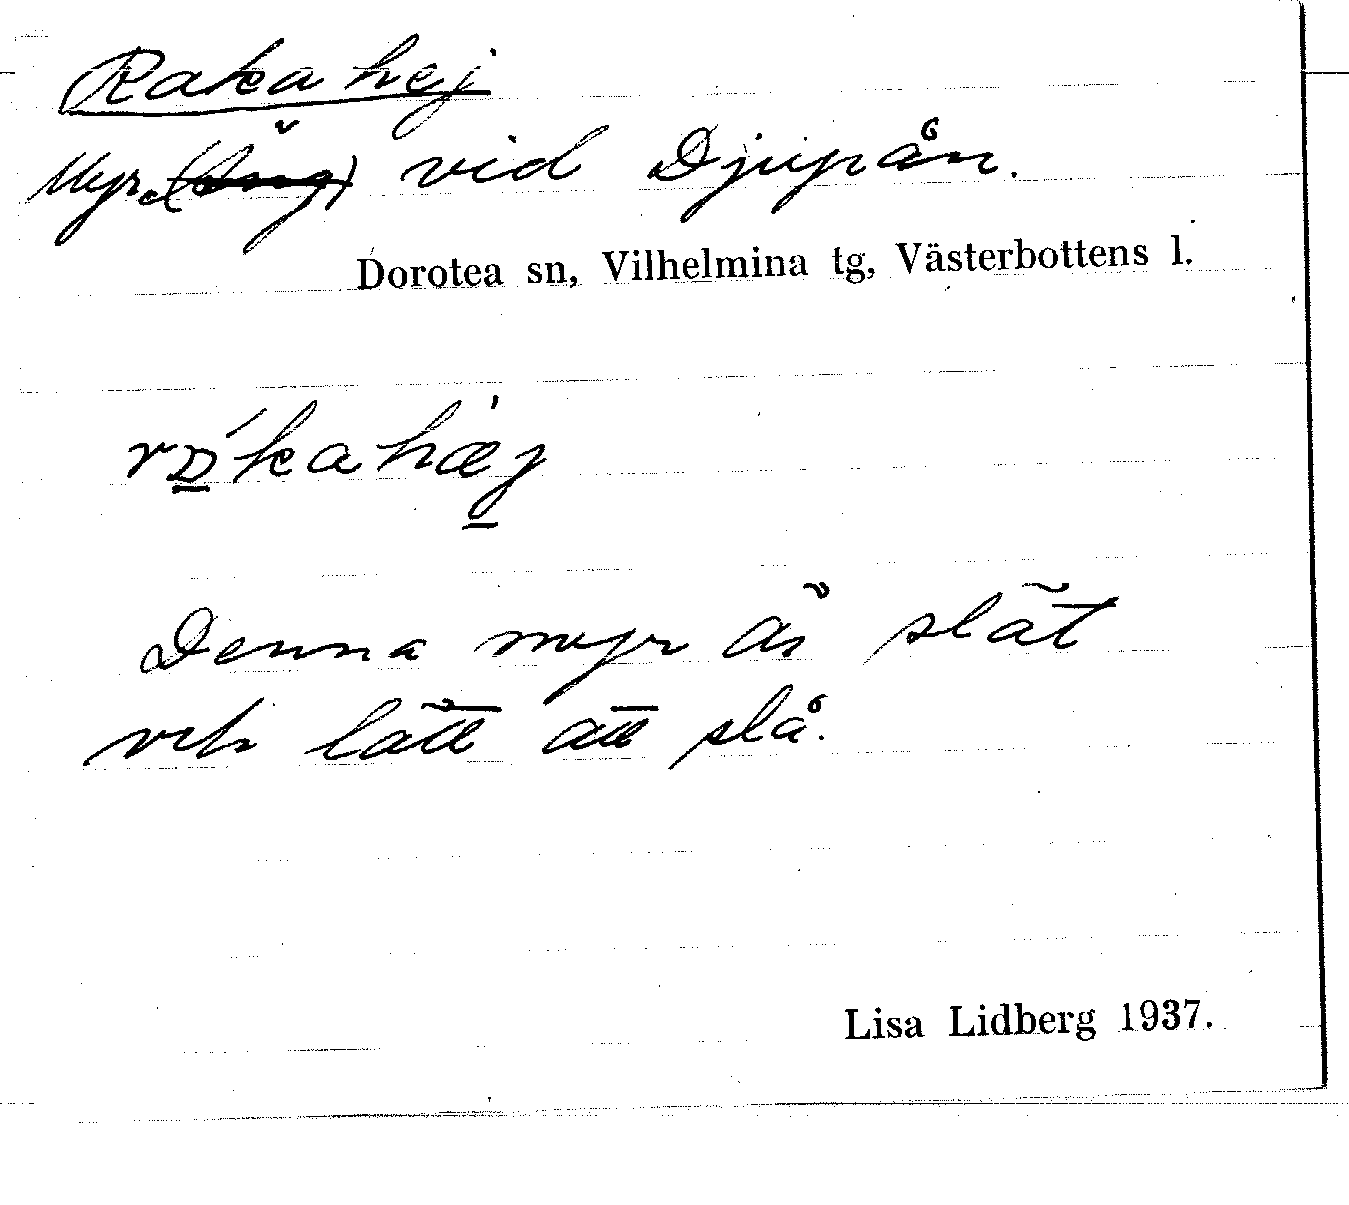 Raka hej
Myr (äng) vid Djupån.
Dorotea sn, Vilhelmina tg, Västerbottens l.
Denna myr är slät
och lätt att slå.
Lisa Lidberg 1937.